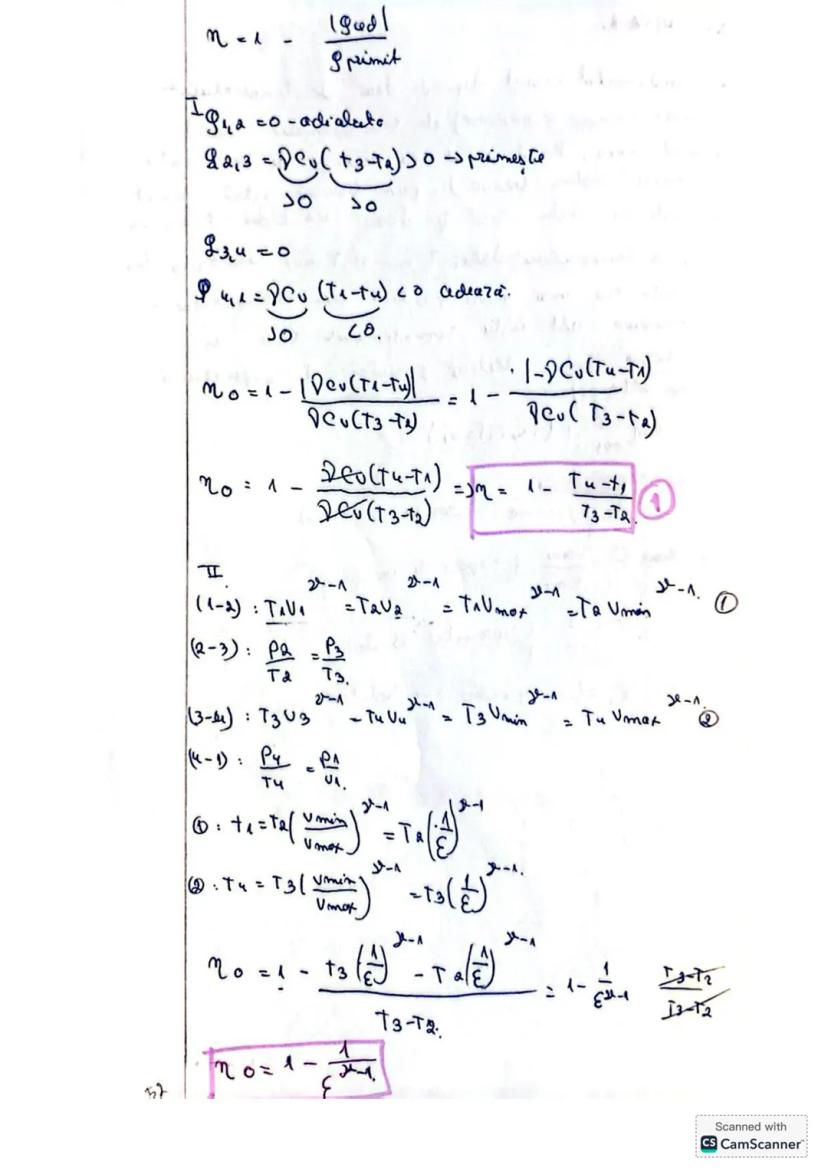 η = 1 - |Qced| / Qprimit
I
Q1,2 = 0 - adiabata
Q2,3 = νCv(T3-T2) > 0 → primeşte
>0 >0
Q3,4 = 0
Q4,1 = νCv (T1-T4) < 0 cedează.
>0 <0.
η0 = 1 - |νCv(T1-T4)| / νCv(T3-T2) = 1 - |-νCv(T4-T1) / νCv(T3-T2)
η0 = 1 - νCv(T4-T1) / νCv(T3-T2) => η = 1 - T4-T1 / T3-T2. ①
II.
(1-2) : T1V1^γ-1 = T2V2^γ-1 = T1Vmax^γ-1 = T2 Vmin^γ-1. ①
(2-3) : P2/T2 = P3/T3.
(3-4) : T3V3^γ-1 = T4V4^γ-1 = T3Vmin^γ-1 = T4 Vmax^γ-1 ②
(4-1) : P4/T4 = P1/V1.
① : T1 = T2(Vmin/Vmax)^γ-1 = T2(1/ε)^γ-1
② : T4 = T3(Vmin/Vmax)^γ-1 = T3(1/ε)^γ-1.
η0 = 1 - T3(1/ε)^γ-1 - T2(1/ε)^γ-1 / T3-T2. = 1 - 1/ε^γ-1 T3-T2 / T3-T2
η0 = 1 - 1/ε^γ-1.
Scanned with
CS CamScanner